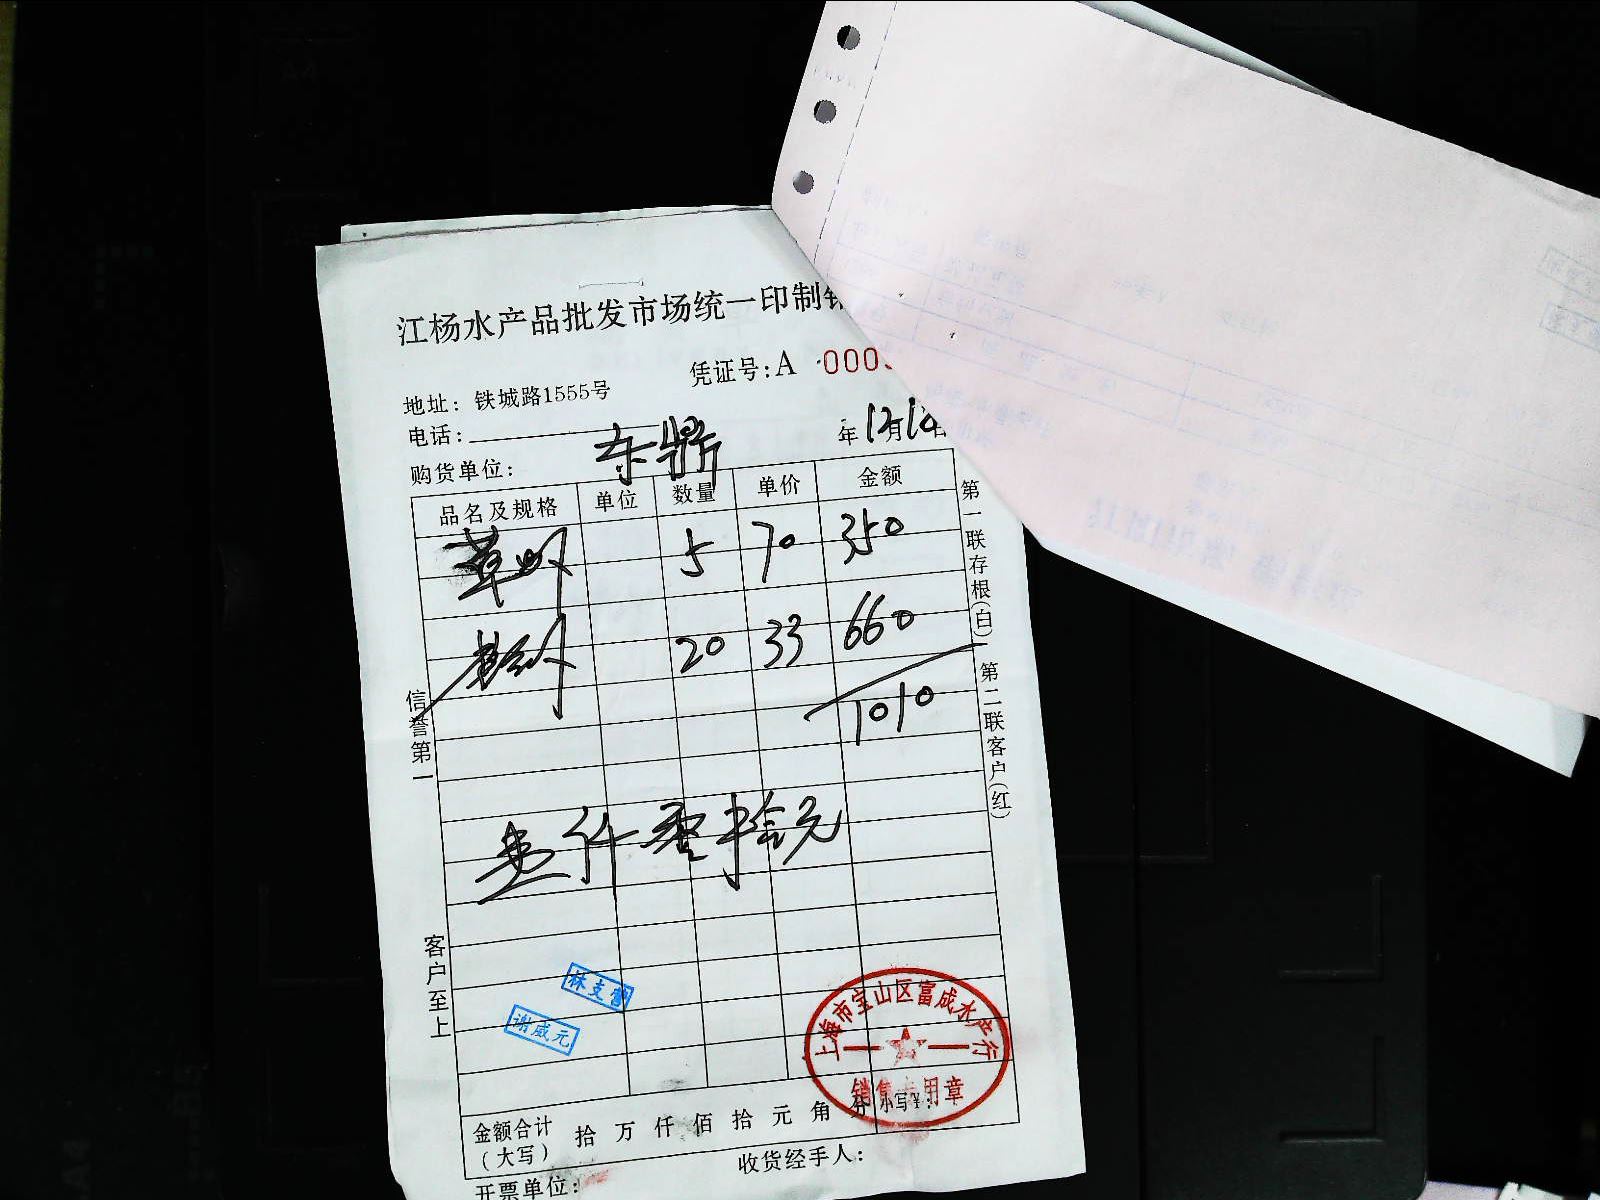 江杨水产品批发市场统一印制销
凭证号：A 0003
地址：铁城路1555号
电话：
购货单位：东鼎 年12月14日
品名及规格 单位 数量 单价 金额
草虾 5 70 350
20 33 660
1010
壹仟零拾元
信誉第一
客户至上
第一联存根(白) 第二联客户(红)
林支营
谢威元
上海市宝山区富成水产行
销售专用章
金额合计(大写) 拾 万 仟 佰 拾 元 角 分 小写¥：
收货经手人：
开票单位：